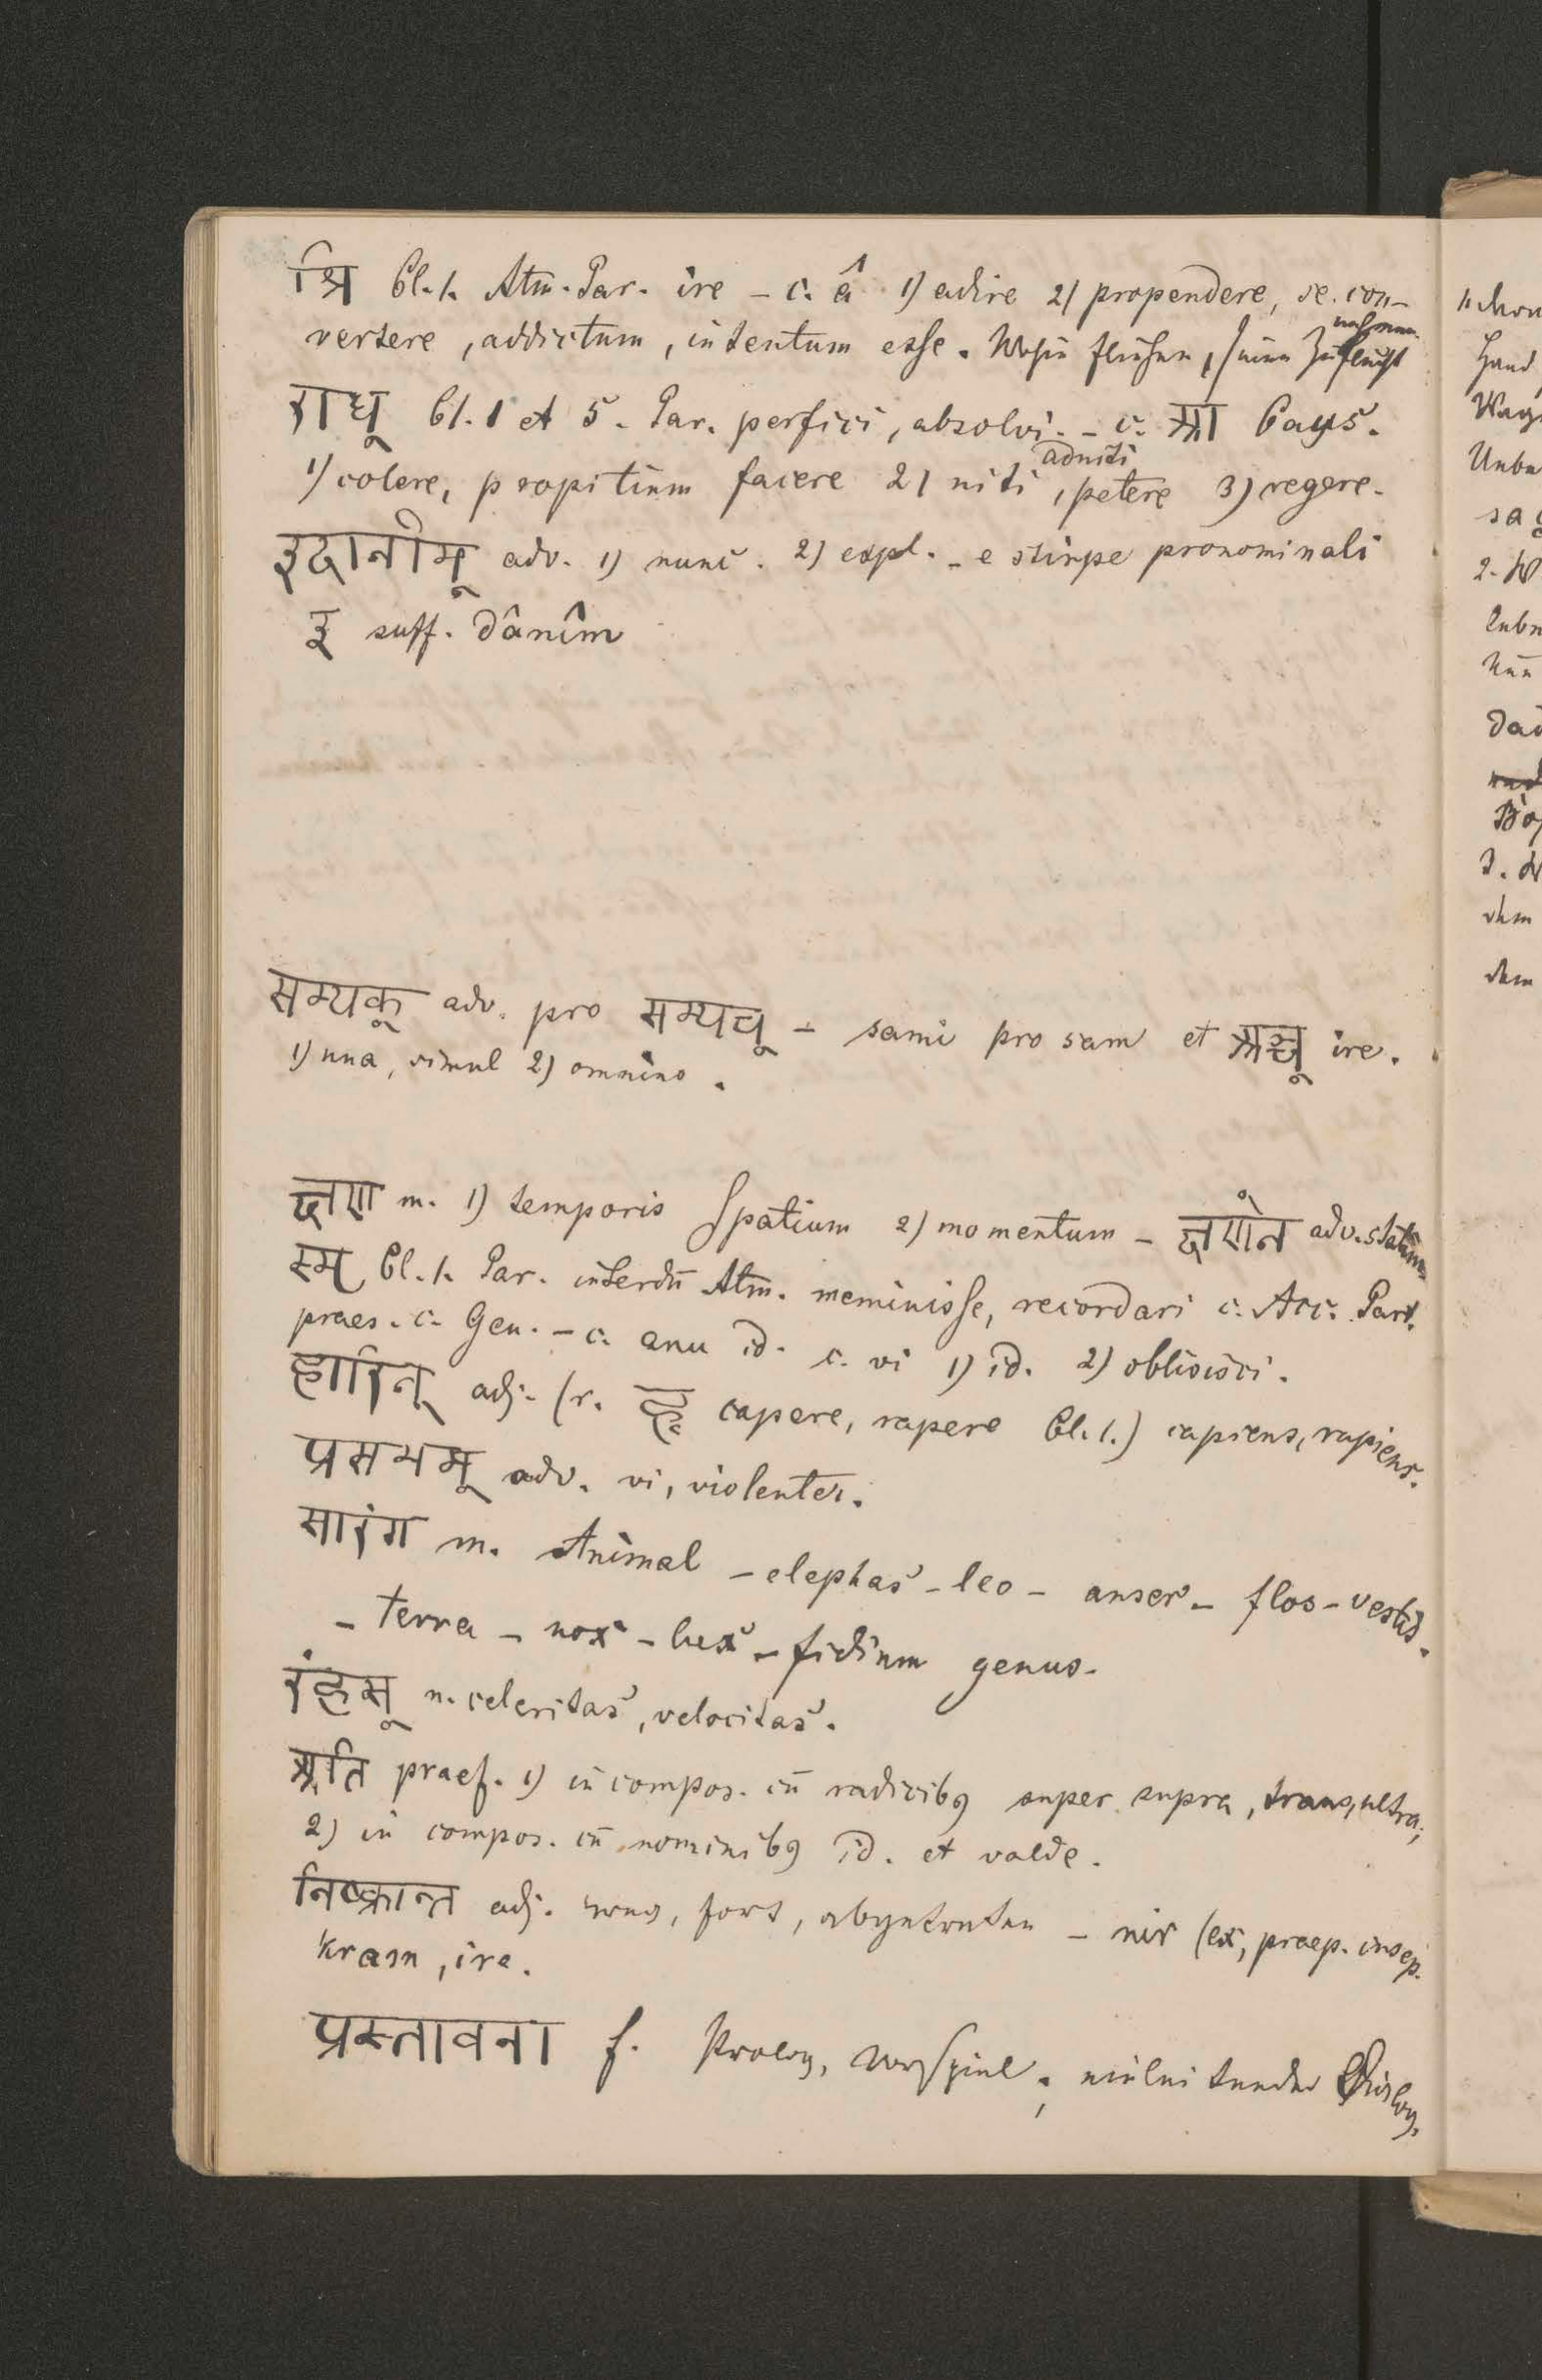 श्रि Cl. 1. Atm. Par. ire – c. â 1) adire 2) propendere, se con-
vertere, addictum, intentum esse. Wohin fliehen, seine Zuflucht
nehmen
राध् Cl. 1 et 5. Par. perfici, absolvi. – c. आ Caus.
adniti
1) colere, propitium facere 2) niti, petere 3) regere.
इदानीम् adv. 1) nunc. 2) expl. – e stirpe pronominali
इ suff. dânîm
सम्यक् adv. pro सम्यच् – sami pro sam et अञ्च् ire.
1) una, simul 2) omnino.
क्षण m. 1) temporis spatium 2) momentum – क्षणेन adv. statim
स्मृ Cl. 1. Par. interdū Atm. meminisse, recordari c. Acc. Part.
praes. c. Gen. – c. anu id. c. vi 1) id. 2) oblivisci.
हारिन् adj. (r. हृ capere, rapere Cl. 1.) capiens, rapiens.
प्रसभम् adv. vi, violenter.
सारंग m. Animal – elephas – leo – anser – flos – vestis.
– terra – nox – lux – fidium genus.
रंहस् n. celeritas, velocitas.
अति praef. 1) in compos. cū radicibꝰ super supra, trans, ultra;
2) in compos. cū nominibꝰ id. et valde.
निष्क्रान्त adj. weg, fort, abgetreten – nir (ex, praep. insep.
kram, ire.
प्रस्तावना f. Prolog, Vorspiel; einleitender Dialog.